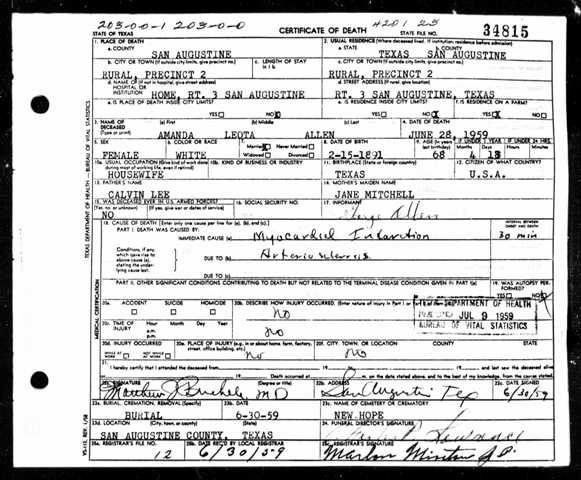 203-00-1 203-0-0
4201 25
STATE OF TEXAS CERTIFICATE OF DEATH STATE FILE NO. 34815
1. PLACE OF DEATH 2. USUAL RESIDENCE (Where deceased lived. If institution: residence before admission)
a. COUNTY a. STATE b. COUNTY
SAN AUGUSTINE TEXAS SAN AUGUSTINE
b. CITY OR TOWN (If outside city limits, give precinct no.) c. LENGTH OF STAY c. CITY OR TOWN (If outside city limits, give precinct no.)
RURAL, PRECINCT 2 RURAL, PRECINCT 2
d. NAME OF (If not in hospital, give street address) d. STREET ADDRESS (If rural, give location)
HOSPITAL OR INSTITUTION HOME, RT. 3 SAN AUGUSTINE RT. 3 SAN AUGUSTINE, TEXAS
e. IS PLACE OF DEATH INSIDE CITY LIMITS? e. IS RESIDENCE INSIDE CITY LIMITS? f. IS RESIDENCE ON A FARM?
YES NO X YES NO X YES X NO
3. NAME OF DECEASED (Type or print) (a) First (b) Middle (c) Last 4. DATE OF DEATH
AMANDA LEOTA ALLEN JUNE 28, 1959
5. SEX 6. COLOR OR RACE 7. Married X Never Married Widowed Divorced 8. DATE OF BIRTH 9. AGE
FEMALE WHITE 2-15-1891 68 4 13
10a. USUAL OCCUPATION (Give kind of work done during most of working life, even if retired) 10b. KIND OF BUSINESS OR INDUSTRY 11. BIRTHPLACE (State or foreign country) 12. CITIZEN OF WHAT COUNTRY?
HOUSEWIFE TEXAS U.S.A.
13. FATHER'S NAME 14. MOTHER'S MAIDEN NAME
CALVIN LEE JANE MITCHELL
15. WAS DECEASED EVER IN U.S. ARMED FORCES? 16. SOCIAL SECURITY NO. 17. INFORMANT
(Yes, no, or unknown) (If yes, give war or dates of service)
NO George Allen
18. CAUSE OF DEATH [Enter only one cause per line for (a), (b), and (c).] INTERVAL BETWEEN ONSET AND DEATH
PART I. DEATH WAS CAUSED BY:
IMMEDIATE CAUSE (a) Myocardial Infarction 30 min
Conditions, if any, which gave rise to above cause (a), stating the underlying cause last. DUE TO (b) Arteriosclerosis
DUE TO (c)
PART II. OTHER SIGNIFICANT CONDITIONS CONTRIBUTING TO DEATH BUT NOT RELATED TO THE TERMINAL DISEASE CONDITION GIVEN IN PART I(a) 19. WAS AUTOPSY PERFORMED?
YES NO
20a. ACCIDENT SUICIDE HOMICIDE 20b. DESCRIBE HOW INJURY OCCURRED. (Enter nature of injury in Part I or Part II)
No
TEXAS DEPARTMENT OF HEALTH
JUL 9 1959
BUREAU OF VITAL STATISTICS
20c. TIME OF INJURY Hour Month Day Year a.m. p.m. No
20d. INJURY OCCURRED 20e. PLACE OF INJURY (e.g., in or about home, farm, factory, street, office building, etc.) 20f. CITY, TOWN, OR LOCATION COUNTY STATE
WHILE AT WORK NOT WHILE AT WORK No No
21. I hereby certify that I attended the deceased from
19 Death occurred at m. on the date stated above, and to the best of my knowledge, from the causes stated.
22a. SIGNATURE (Degree or title) 22b. ADDRESS 22c. DATE SIGNED
MD San Augustine Tex 6/30/59
23a. BURIAL, CREMATION, REMOVAL (Specify) 23b. DATE 23c. NAME OF CEMETERY OR CREMATORY
BURIAL 6-30-59 NEW HOPE
23d. LOCATION (City, town, or county) (State) 24. FUNERAL DIRECTOR'S SIGNATURE
SAN AUGUSTINE COUNTY, TEXAS
25a. REGISTRAR'S FILE NO. 25b. DATE REC'D BY LOCAL REGISTRAR 25c. REGISTRAR'S SIGNATURE
12 6/30/59
TEXAS DEPARTMENT OF HEALTH — BUREAU OF VITAL STATISTICS
MEDICAL CERTIFICATION
VS-112, REV. 1/58